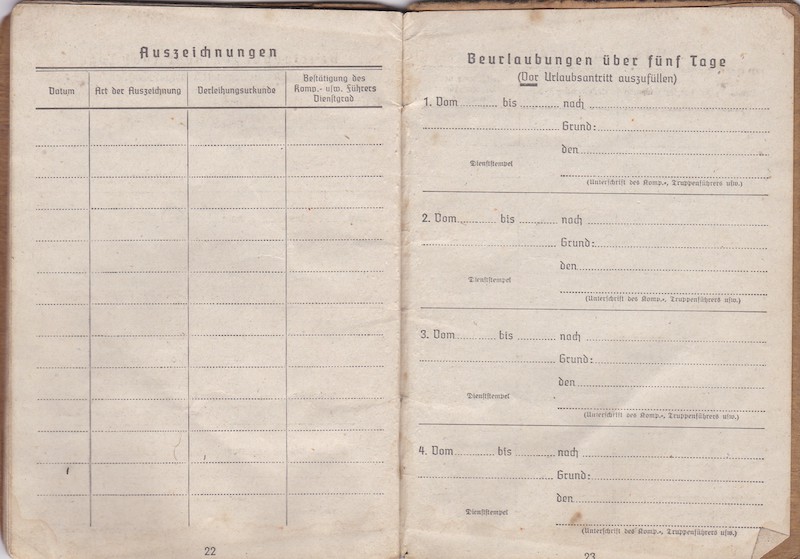 Auszeichnungen
Datum
Art der Auszeichnung
Verleihungsurkunde
Bestätigung des
Komp.- usw. Führers
Dienstgrad
22
Beurlaubungen über fünf Tage
(Vor Urlaubsantritt auszufüllen)
1. Vom ............ bis ............ nach ............
Grund: ............
den ............
Dienststempel
(Unterschrift des Komp.-, Truppenführers usw.)
2. Vom ............ bis ............ nach ............
Grund: ............
den ............
Dienststempel
(Unterschrift des Komp.-, Truppenführers usw.)
3. Vom ............ bis ............ nach ............
Grund: ............
den ............
Dienststempel
(Unterschrift des Komp.-, Truppenführers usw.)
4. Vom ............ bis ............ nach ............
Grund: ............
den ............
Dienststempel
(Unterschrift des Komp.-, Truppenführers usw.)
23